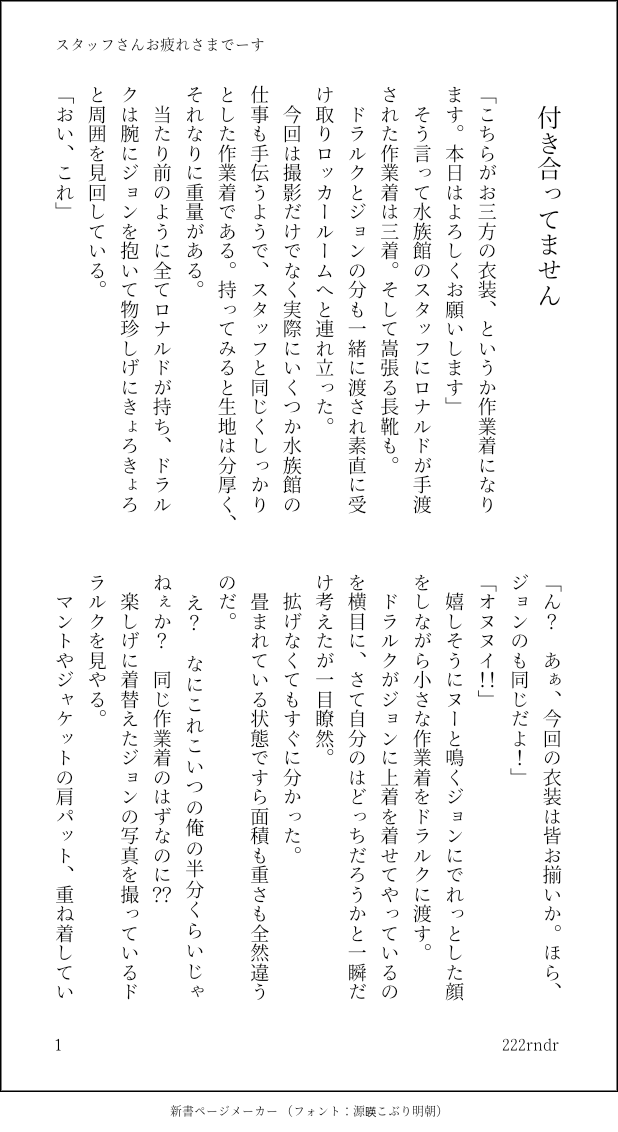 スタッフさんお疲れさまでーす
付き合ってません
「こちらがお三方の衣装、というか作業着になり
ます。本日はよろしくお願いします」
　そう言って水族館のスタッフにロナルドが手渡
された作業着は三着。そして嵩張る長靴も。
　ドラルクとジョンの分も一緒に渡され素直に受
け取りロッカールームへと連れ立った。
　今回は撮影だけでなく実際にいくつか水族館の
仕事も手伝うようで、スタッフと同じくしっかり
とした作業着である。持ってみると生地は分厚く、
それなりに重量がある。
　当たり前のように全てロナルドが持ち、ドラル
クは腕にジョンを抱いて物珍しげにきょろきょろ
と周囲を見回している。
「おい、これ」
「ん？　あぁ、今回の衣装は皆お揃いか。ほら、
ジョンのも同じだよ！」
「オヌヌイ!!」
　嬉しそうにヌーと鳴くジョンにでれっとした顔
をしながら小さな作業着をドラルクに渡す。
　ドラルクがジョンに上着を着せてやっているの
を横目に、さて自分のはどっちだろうかと一瞬だ
け考えたが一目瞭然。
　拡げなくてもすぐに分かった。
　畳まれている状態ですら面積も重さも全然違う
のだ。
　え？　なにこれこいつの俺の半分くらいじゃ
ねぇか？　同じ作業着のはずなのに??
　楽しげに着替えたジョンの写真を撮っているド
ラルクを見やる。
　マントやジャケットの肩パット、重ね着してい
1
222rndr
新書ページメーカー（フォント：源暎こぶり明朝）